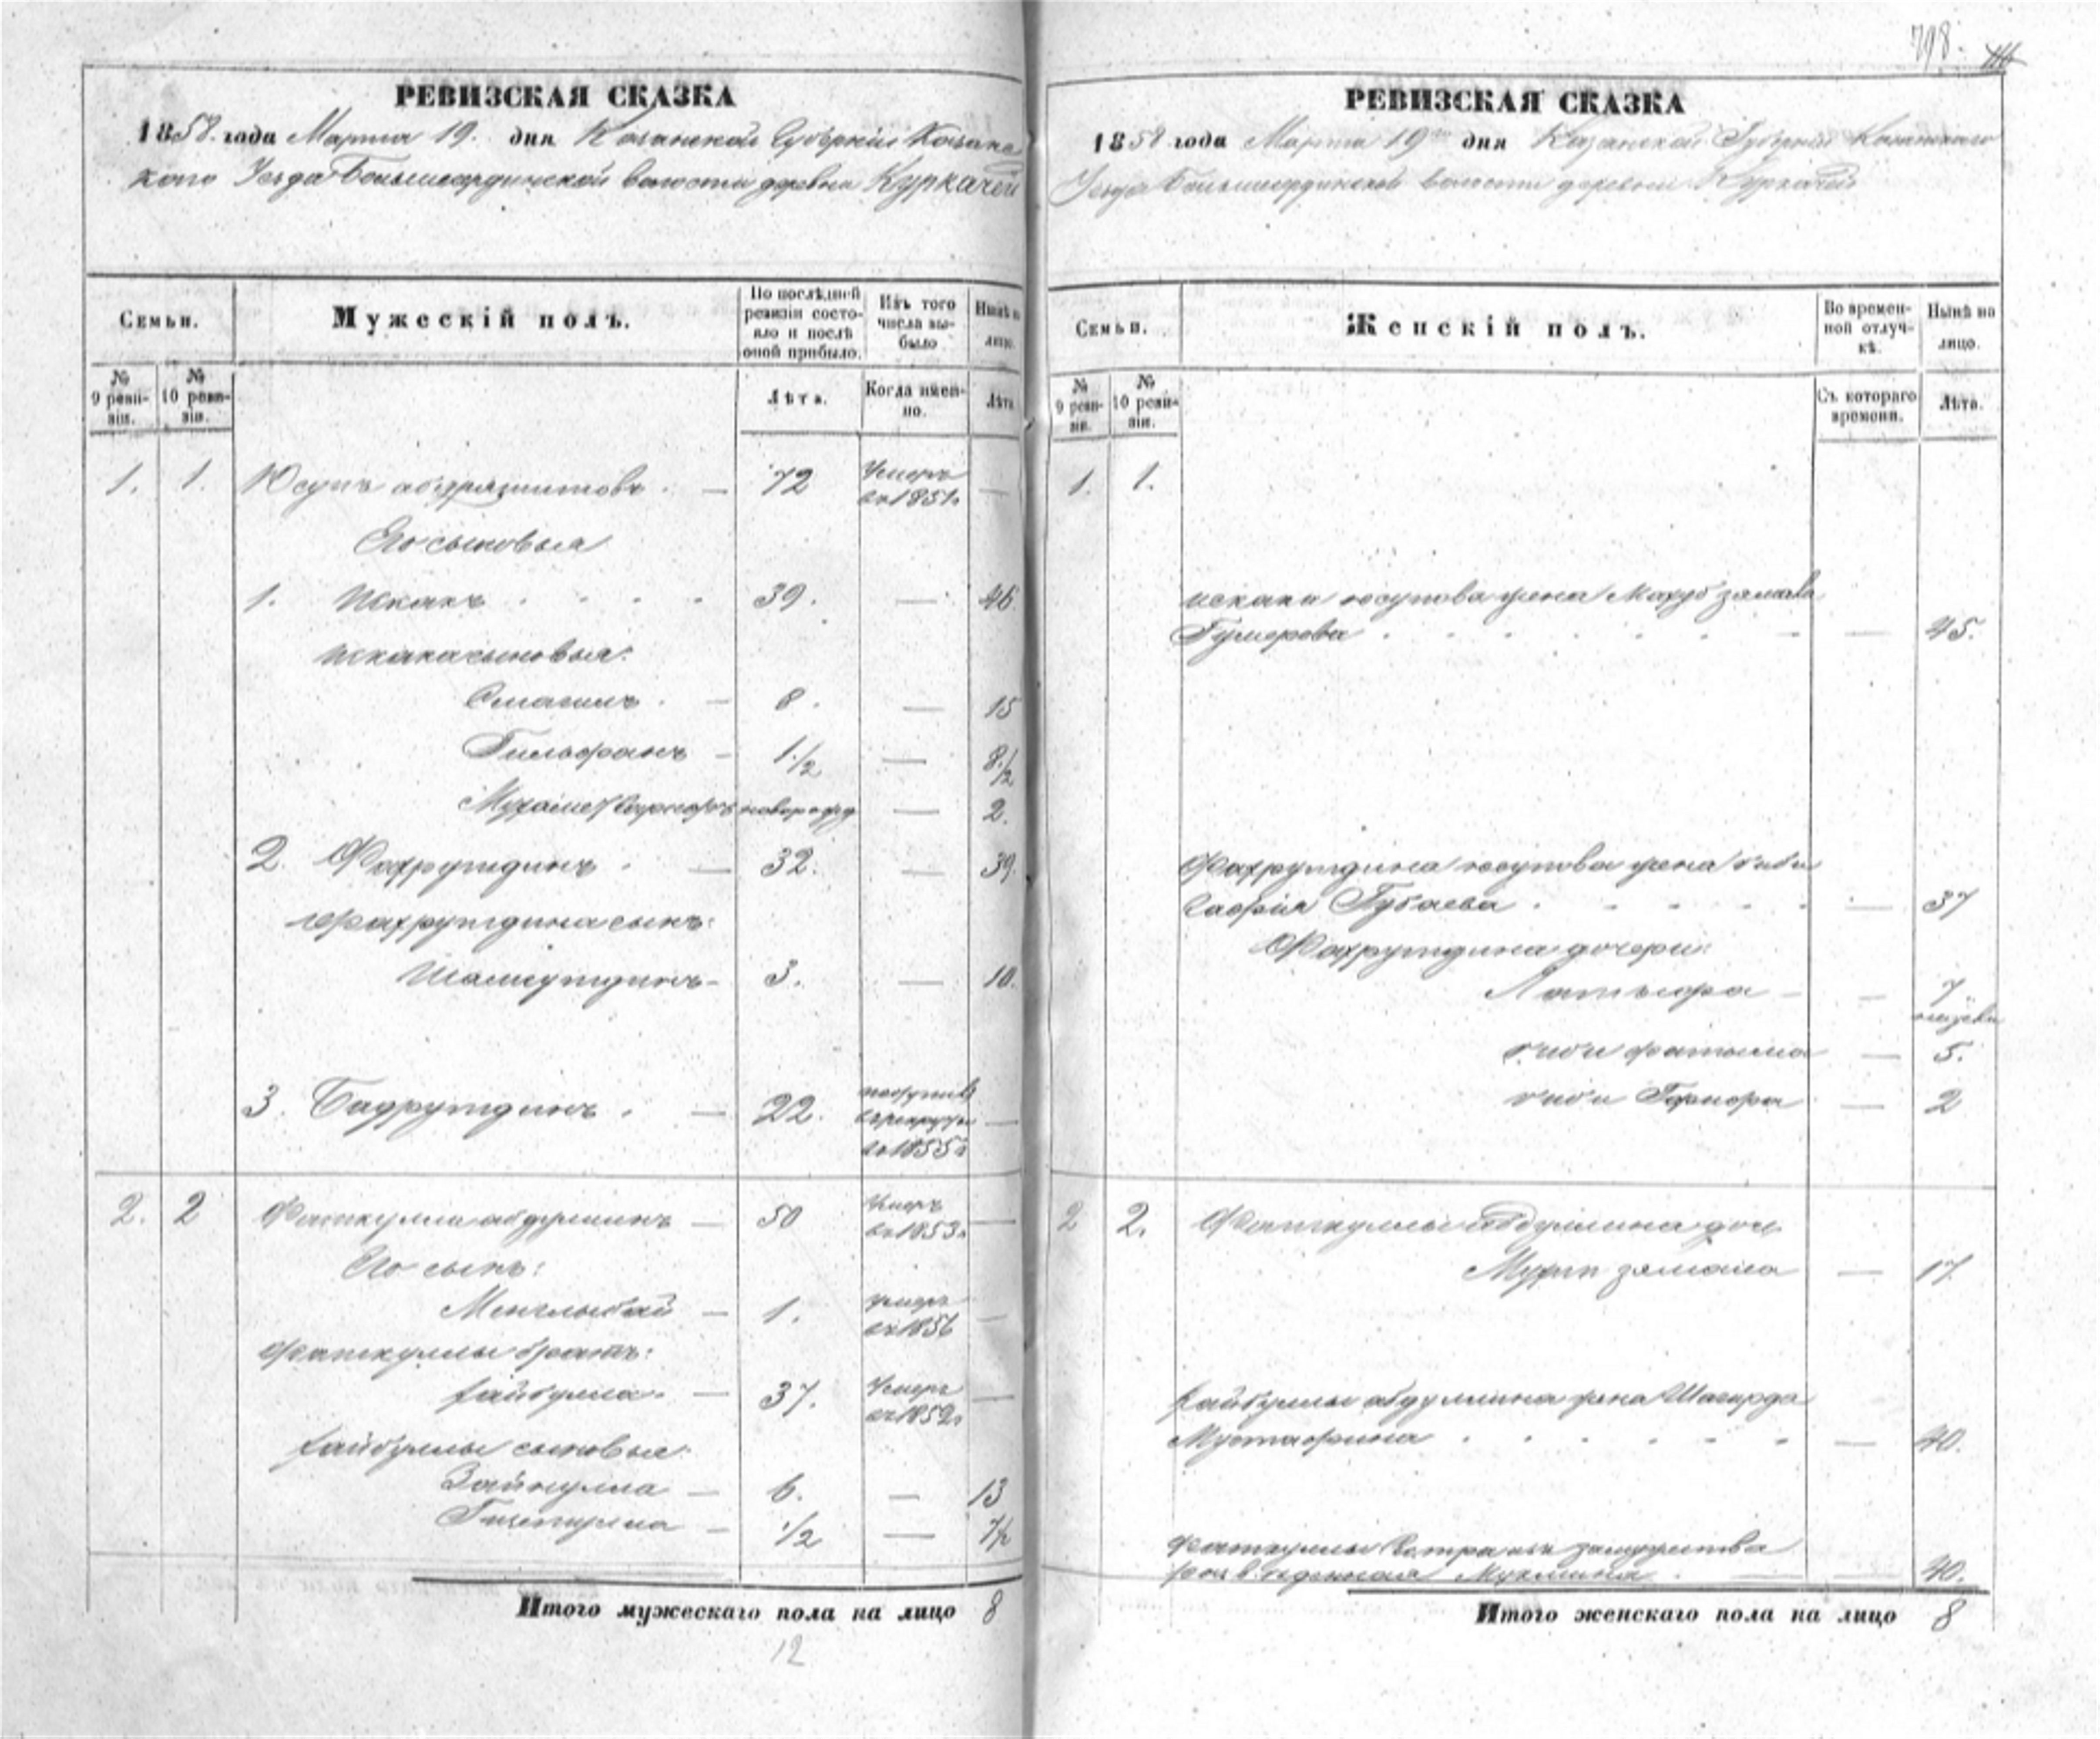 798.
РЕВИЗСКАЯ СКАЗКА
1858. года Марта 19. дня Казанской Губерніи Казанс
каго Уезда Большеординской волости деревни Куркачей
Семьи.
Мужескій полъ.
По послѣдней ревизіи состояло и послѣ оной прибыло.
Изъ того числа выбыло
Нынѣ на лицо.
№ 9 ревизіи.
№ 10 ревизіи.
Лѣта.
Когда именно.
Лѣта
1. 1. Юсупъ — 72 Умеръ въ 1851г —
Его сыновья
1. Искакъ 39. — 46
Искака сыновья:
Смагилъ — 8. — 15
Гильфанъ — 1 1/2 — 8 1/2
новорожд — 2.
2. Фахрутдинъ — 32. — 39.
Фахрутдина сынъ:
Шамсутдинъ — 3. — 10.
3. Бадрутдинъ — 22. въ рекруты въ 1855г —
2. 2 Фаткулла абдулинъ — 50 Умеръ въ 1853г —
Его сынъ:
Менглыбай — 1. умеръ въ 1856 —
Фаткуллы братъ:
Хайбулла — 37. Умеръ въ 1852г —
Хайбуллы сыновья:
Зайнулла — 6. — 13
— 1/2 — 7 1/2
Итого мужескаго пола на лицо 8
12
РЕВИЗСКАЯ СКАЗКА
1858 года Марта 19го дня Казанской Губерніи Казанскаго
Уезда Большеординской волости деревни Куркачей
Семьи.
Женскій полъ.
Во временной отлучкѣ.
Нынѣ на лицо.
№ 9 ревизіи.
№ 10 ревизіи.
Съ котораго времени.
Лѣта.
1. 1.
Искака юсупова жена
Гумерова — 45.
Фахрутдина юсупова жена биби
Губаева — 37
Фахрутдина дочери:
— 7
биби фатыма — 5.
биби — 2
2 2. Фаткуллы абдуллина дочь
зямала — 17
Хайбуллы абдуллина жена
Мустафина — 40.
Фаткуллы сестра изъ замужества
— 40.
Итого женскаго пола на лицо 8